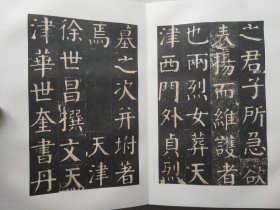 之君子所急欲
表揚而維護者
也兩烈女葬天
津西門外貞烈
墓之次并坿著
焉　天津
徐世昌撰文天
津華世奎書丹